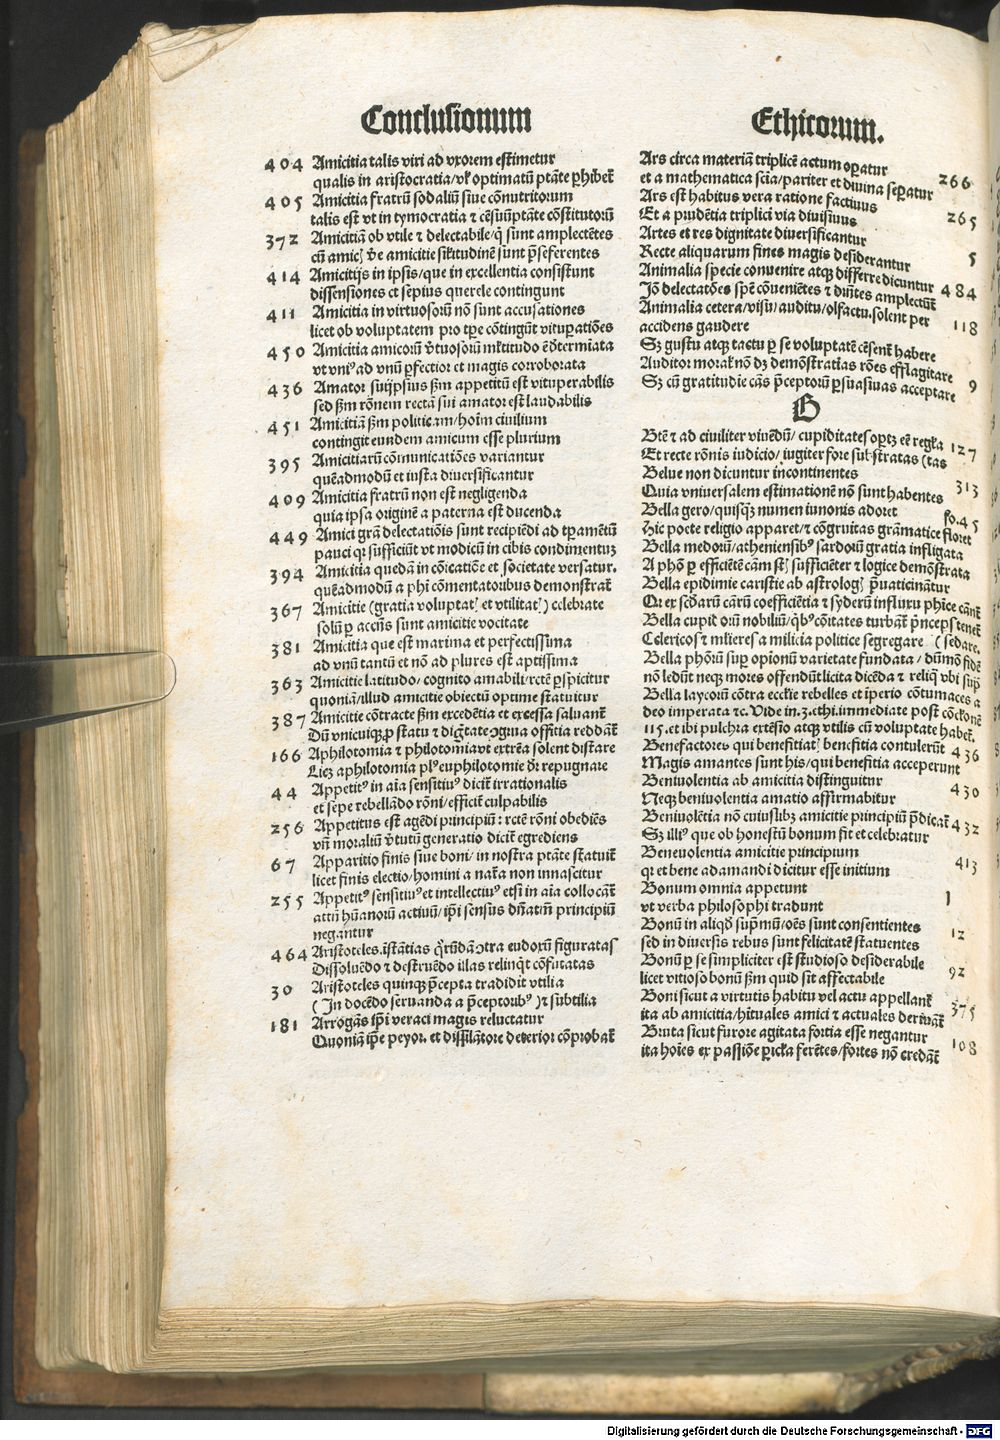 Conclusionum
404 Amicitia talis viri ad vxorem estimetur
qualis in aristocratia/vl' optimatū ptāte phibet̄
405 Amicitia fratrū sodaliū siue cōnutritorum
talis est vt in tymocratia ⁊ cēsuūptāte cōstitutorū
372 Amicitiā ob vtile ⁊ delectabile/q̄ sunt amplectētes
cū amicꝫ v̄e amicitie sil'itudinē sunt p̄seferentes
414 Amicitijs in ipsis/que in excellentia consistunt
dissensiones et sepius querele contingunt
411 Amicitia in virtuosorū nō sunt accusationes
licet ob voluptatem pro tꝑe cōtingūt vituꝑatiōes
450 Amicitia amicorū v̄tuosorū ml'titudo ē d̄termīata
vt vniꝰ ad vnū ꝑfectior et magis corroborata
436 Amator suijpsius sꝫm appetitū est vituperabilis
sed sꝫm rōnem rectā sui amator est laudabilis
451 Amicitiā sꝫm politicam/hoīm ciuilium
contingit eundem amicum esse plurium
395 Amicitiarū cōmunicatiōes variantur
quēadmodū et iusta diuersificantur
409 Amicitia fratrū non est negligenda
quia ipsa originē a paterna est ducenda
449 Amici grā delectatiōis sunt recipiēdi ad tꝑamētū
pauci qꝛ sufficiūt vt modicū in cibis condimentuꝫ
394 Amicitia quedā in cōicatiōe et societate versatur.
quēadmodū a phi cōmentatoribus demonstrat̄
367 Amicitie (gratia voluptatꝫ et vtilitatꝫ) celebrate
solū ꝑ accn̄s sunt amicitie vocitate
381 Amicitia que est maxima et perfectissima
ad vnū tantū et nō ad plures est aptissima
363 Amicitie latitudo/ cognito amabili/rctē ꝑspicitur
quoniā/illud amicitie obiectū optime statuitur
387 Amicitie cōtracte sꝫm excedētia et excessa saluant̄
Dū vnicuiqꝫ ꝓ statu ⁊ dig̃tate ꝯgrua offitia reddāt̄
166 Aphilotomia ⁊ philotomia vt extrēa solent distare
Licꝫ aphilotomia plꝰ euphilotomie d̄r repugnare
44 Appetitꝰ in aīa sensitiuꝰ dicit̄ irrationalis
et sepe rebellādo rōni/efficit̄ culpabilis
256 Appetitus est agēdi principiū : rctē rōni obediēs
vn̄ moraliū v̄tutū generatio dicit̄ egrediens
67 Apparitio finis siue boni/ in nostra ptāte statuit̄
licet finis electio/homini a nat'a non innascitur
255 Appetitꝰ sensitiuꝰ et intellectiuꝰ etsi in aīa collocāt̄
attn̄ hūanorū actiuū/ ip̄i sensus dn̄atiū principiū
negantur
464 Aristoteles.istātias q̄rūdā ꝯtra eudorū figuratas
Dissoluēdo ⁊ destruēdo illas relinqt̄ cōfutatas
30 Aristoteles quinqꝫ p̄cepta tradidit vtilia
(In docēdo seruanda a p̄ceptoribꝰ) ⁊ subtilia
181 Arrogās ip̄i veraci magis reluctatur
Quoniā ip̄e peyor. et dissil'atore deterior cōprobat̄
Ethicorum.
Ars circa materiā triplicē actum oꝑatur 266
et a mathematica scīa/pariter et diuina seꝑatur
Ars est habitus vera ratione factiuus 265
Et a prudētia triplici via diuisiuus
Artes et res dignitate diuersificantur 5
Recte aliquarum fines magis desiderantur
Animalia specie conuenire atqꝫ differre dicuntur 484
Iō delectatōes spē cōueniētes ⁊ dr̄ntes amplectūt̄
Animalia cetera/visu/auditu/olfactu.solent per 118
accidens gaudere
Sꝫ gustu atqꝫ tactu ꝑ se voluptatē cēsent̄ habere
Auditor moral' nō dꝫ demōstratias rōes efflagitare 9
Sꝫ cū gratitudīe cās p̄ceptorū ꝑsuasiuas acceptare
B
Btē ⁊ ad ciuiliter viuēdū/ cupiditates oꝑtꝫ eē regl'a 127
Et recte rōnis iudicio/ iugiter fore substratas (tas
Belue non dicuntur incontinentes 313
Quia vniuersalem estimationē nō sunt habentes
Bella gero/quisqꝫ numen iunonis adoret fo.45
Hic poete religio apparet/⁊ cōgruitas grāmatice floret
Bella medorū/atheniensibꝰ sardorū gratia infligata
A phō ꝑ efficiētē cām stꝫ sufficiēter ⁊ logice demōstrata
Bella epidimie caristie ab astrologꝫ p̄uaticinātur
Qꝛ ex scd̄arū cārū coefficiētia ⁊ syderū influxu phīce cānt̄
Bella cupidorū nobiliū/q̄bꝰ cōitates turbāt̄ p̄nceps tenet̄
Clericos ⁊ ml'ieres a milicia politice segregare (sedare.
Bella phōrū suꝑ opionū varietate fundata / dūmō fidē
nō ledūt neqꝫ mores offendūt licita dicēda ⁊ reliq̄ vbi suꝑ
Bella laycorū cōtra eccl'ie rebelles et īperio cōtumaces a
deo imperata ⁊c. Vide in.3.ethi.immediate post cōcl'onē
115.et ibi pulchra extēsio atqꝫ vtilis cū voluptate habet̄.
Benefactores qui benefitiatꝫ benefitia contulerūt 436
Magis amantes sunt his/qui benefitia acceperunt
Beniuolentia ab amicitia distinguitur 430
Neqꝫ beniuolentia amatio affirmabitur
Beniuolētia nō cuiuslibꝫ amicitie principiū p̄dicat̄ 432
Sꝫ illiꝰ que ob honestū bonum fit et celebratur
Beneuolentia amicitie principium 413
qꝛ et bene adamandi dicitur esse initium
Bonum omnia appetunt 1
vt verba philosophi tradunt
Bonū in aliqō sup̄mū/oēs sunt consentientes 12
sed in diuersis rebus sunt felicitatē statuentes
Bonū ꝑ se simpliciter est studioso desiderabile 92
licet vitioso bonū sꝫm quid sit affectabile
Boni sicut a virtutis habitu vel actu appellant̄ 375
ita ab amicitia/hituales amici ⁊ actuales deriuāt̄
Bruta sicut furore agitata fortia esse negantur 108
ita hoīes ex passiōe ꝑicl'a ferētes/fortes nō credāt̄
Digitalisierung gefördert durch die Deutsche Forschungsgemeinschaft - DFG